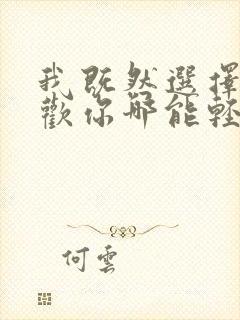 我既然選擇
歡你哪能輕
何雲